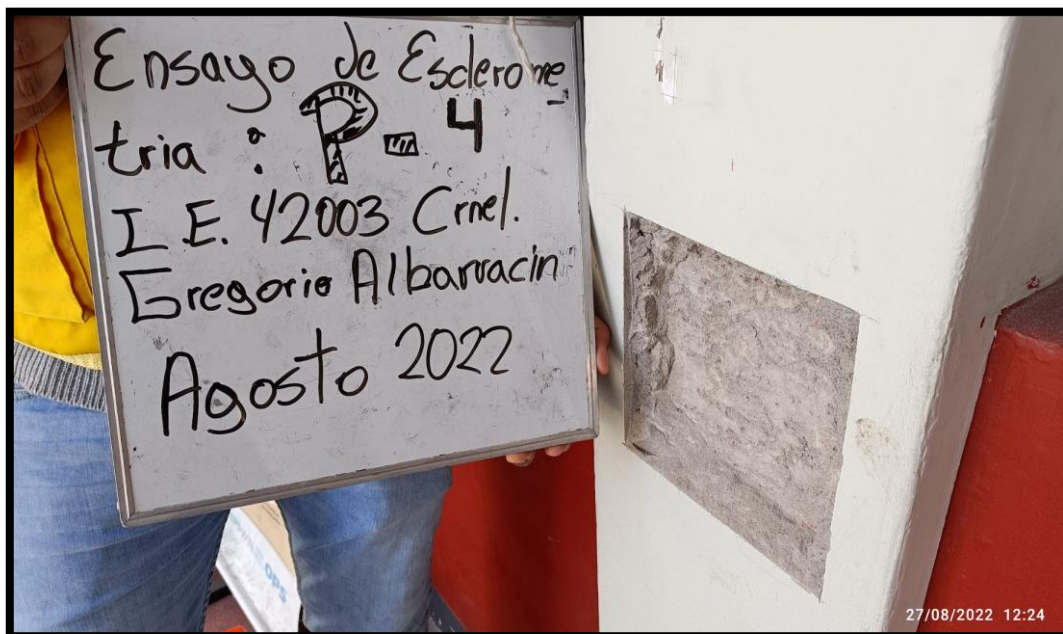 Ensayo de Esclerome_
tria : P-4
I.E. 42003 Crnel.
Gregorio Albarracin
Agosto 2022
OPS
27/08/2022 12:24